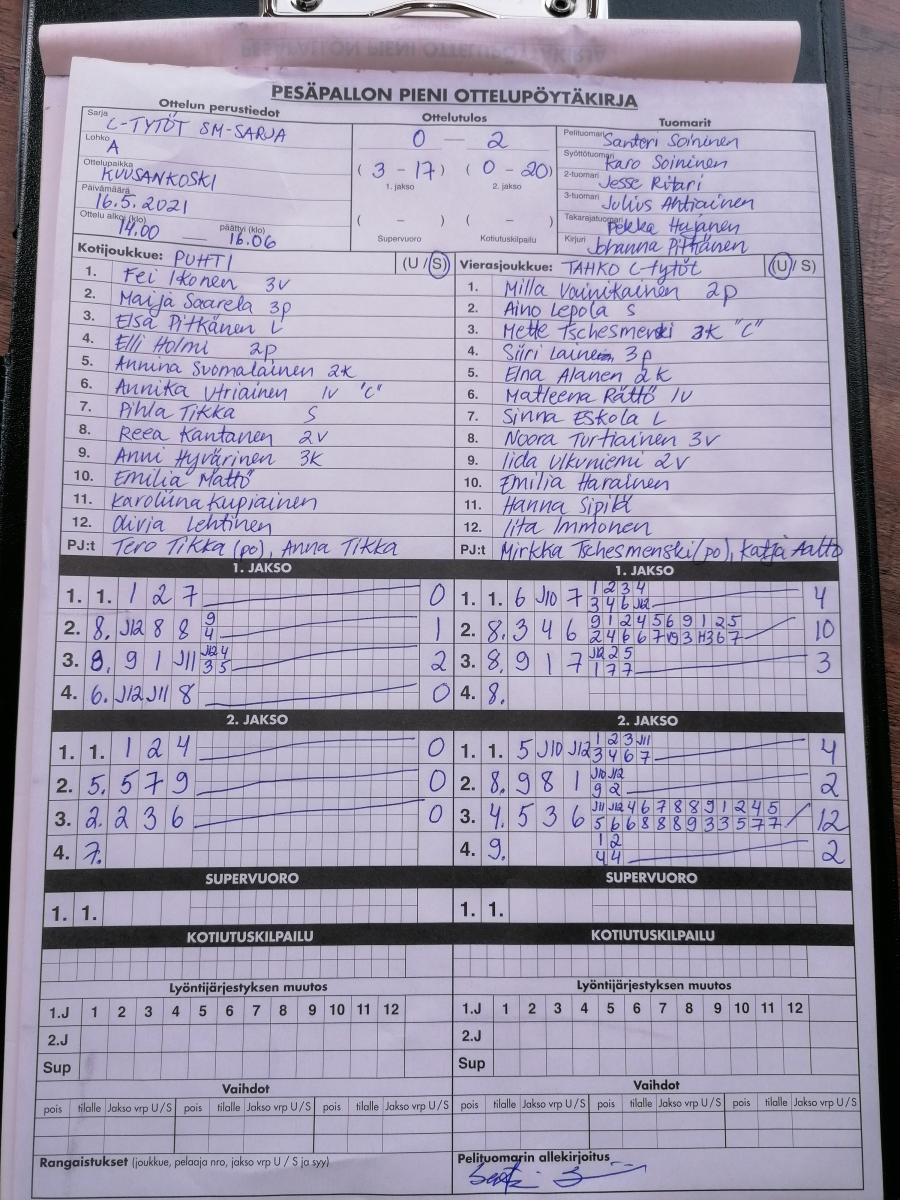 PESÄPALLON PIENI OTTELUPÖYTÄKIRJA
Ottelun perustiedot
Sarja C-TYTÖT SM-SARJA
Lohko A
Ottelupaikka KUUSANKOSKI
Päivämäärä 16.5.2021
Ottelu alkoi (klo) 14.00 — päättyi (klo) 16.06
Ottelutulos
0 — 2
(3 - 17) (0 - 20)
1. jakso 2. jakso
( - ) ( - )
Supervuoro Kotiutuskilpailu
Tuomarit
Pelituomari Santeri Soininen
Syöttötuomari Karo Soininen
2-tuomari Jesse Ritari
3-tuomari Julius Ahtiainen
Takarajatuomari Pekka Hujanen
Kirjuri Johanna Pitkänen
Kotijoukkue: PUHTI (U / S)
1. Fei Ikonen 3v
2. Maija Saarela 3p
3. Elsa Pitkänen L
4. Elli Holmi 2p
5. Annina Suomalainen 2K
6. Annika Utriainen 1v "C"
7. Pihla Tikka S
8. Reea Kantanen 2v
9. Anni Hyvärinen 3K
10. Emilia Mättö
11. Karoliina Kupiainen
12. Olivia Lehtinen
PJ:t Tero Tikka (po), Anna Tikka
Vierasjoukkue: TAHKO C-tytöt (U / S)
1. Milla Vainikainen 2p
2. Aino Lepola S
3. Mette Tschesmenski 3K "C"
4. Siiri Laine 3p
5. Elna Alanen 2K
6. Matleena Rättö 1v
7. Sinna Eskola L
8. Noora Turtiainen 3v
9. Iida Ulkuniemi 2v
10. Emilia Harainen
11. Hanna Sipilä
12. Iita Immonen
PJ:t Mirkka Tschesmenski (po), Katja Aalto
1. JAKSO
1. 1. 1 2 7 0
2. 8. J12 8 8 9 1
4
3. 9. 9 1 J11 J12 4 2
3 5
4. 6. J12 J11 8 0
1. JAKSO
1. 1. 6 J10 7 1 2 3 4 4
3 4 6 J12
2. 8. 3 4 6 9 1 2 4 5 6 9 1 2 5 10
2 4 6 6 7 J9 3 H3 6 7
3. 8. 9 1 7 J12 2 5 3
1 7 7
4. 8.
2. JAKSO
1. 1. 1 2 4 0
2. 5. 5 7 9 0
3. 2. 2 3 6 0
4. 7.
2. JAKSO
1. 1. 5 J10 J12 1 2 3 J11 4
3 4 6 7
2. 8. 9 8 1 J10 J12 2
9 2
3. 4. 5 3 6 J11 J12 4 6 7 8 8 9 1 2 4 5 12
5 6 6 8 8 8 9 3 3 5 7 7
4. 9. 1 2 2
4 4
SUPERVUORO
1. 1.
SUPERVUORO
1. 1.
KOTIUTUSKILPAILU
KOTIUTUSKILPAILU
Lyöntijärjestyksen muutos
1.J 1 2 3 4 5 6 7 8 9 10 11 12
2.J
Sup
Lyöntijärjestyksen muutos
1.J 1 2 3 4 5 6 7 8 9 10 11 12
2.J
Sup
Vaihdot
pois tilalle Jakso vrp U / S pois tilalle Jakso vrp U / S pois tilalle Jakso vrp U / S
Vaihdot
pois tilalle Jakso vrp U / S pois tilalle Jakso vrp U / S pois tilalle Jakso vrp U / S
Rangaistukset (joukkue, pelaaja nro, jakso vrp U / S ja syy)
Pelituomarin allekirjoitus